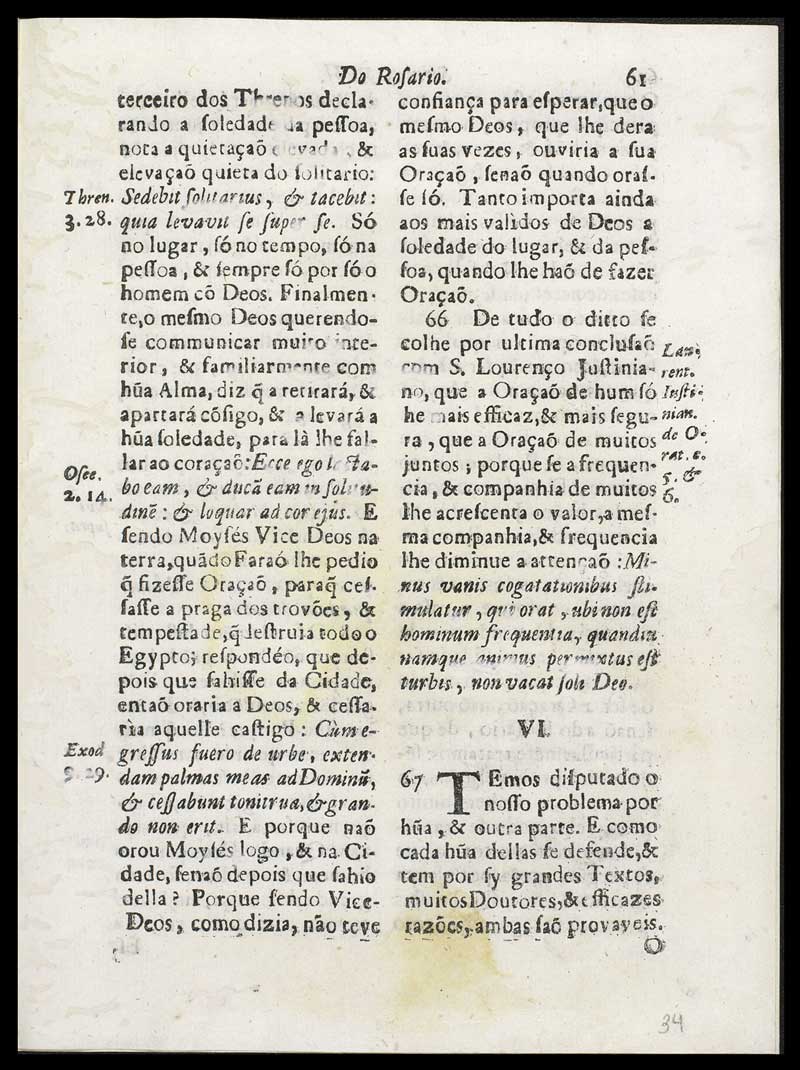 Do Roſario. 61
terceiro dos Threnos decla-
rando a ſoledade da peſſoa,
nota a quietaçaõ elevada, &
elevaçaõ quieta do ſolitario:
Thren. 3. 28.
Sedebit ſolitarius, & tacebit:
quia levavit ſe ſuper ſe. Só
no lugar, ſó no tempo, ſó na
peſſoa, & ſempre ſó por ſó o
homem cõ Deos. Finalmen-
te, o meſmo Deos querendo-
ſe communicar muito inte-
rior, & familiarmente com
hũa Alma, diz q̃ a retirará, &
apartará cõſigo, & a levará a
hũa ſoledade, para là lhe fal-
lar ao coraçaõ: Ecce ego lacta-
Oſee. 2. 14.
bo eam, & ducã eam in ſolitu-
dinẽ: & loquar ad cor ejùs. E
ſendo Moyſés Vice Deos na
terra, quãdo Faraó lhe pedio
q̃ fizeſſe Oraçaõ, paraq̃ ceſ-
ſaſſe a praga dos trovões, &
tempeſtade, q̃ deſtruia todo o
Egypto; reſpondéo, que de-
pois que ſahiſſe da Cidade,
entaõ oraria a Deos, & ceſſa-
rìa aquelle caſtigo: Cùm e-
Exod 9. 29.
greſſus fuero de urbe, exten-
dam palmas meas ad Dominũ,
& ceſſabunt tonitrua, & gran-
do non erit. E porque naõ
orou Moyſés logo, & na Ci-
dade, ſenaõ depois que ſahio
della? Porque ſendo Vice-
Deos, como dizia, não teve
confiança para eſperar, que o
meſmo Deos, que lhe dera
as ſuas vezes, ouviria a ſua
Oraçaõ, ſenaõ quando oraſ-
ſe ſó. Tanto importa ainda
aos mais validos de Deos a
ſoledade do lugar, & da peſ-
ſoa, quando lhe haõ de fazer
Oraçaõ.
66 De tudo o ditto ſe
colhe por ultima concluſaõ
com S. Lourenço Juſtinia-
no, que a Oraçaõ de hum ſó
he mais efficaz, & mais ſegu-
ra, que a Oraçaõ de muitos
juntos; porque ſe a frequen-
cia, & companhia de muitos
lhe acreſcenta o valor, a meſ-
ma companhia, & frequencia
lhe diminue a attençaõ: Mi-
nus vanis cogatationibus ſti-
mulatur, qui orat, ubi non eſt
hominum frequentia, quandiu
namque animus permixtus eſt
turbis, non vacat ſoli Deo.
Lau-
rent.
Juſti-
nian.
de O-
rat. c.
5. &
6.
VI.
67 TEmos diſputado o
noſſo problema por
hũa, & outra parte. E como
cada hũa dellas ſe defende, &
tem por ſy grandes Textos,
muitos Doutores, & efficazes
razões, ambas ſaõ provaveis.
O
34